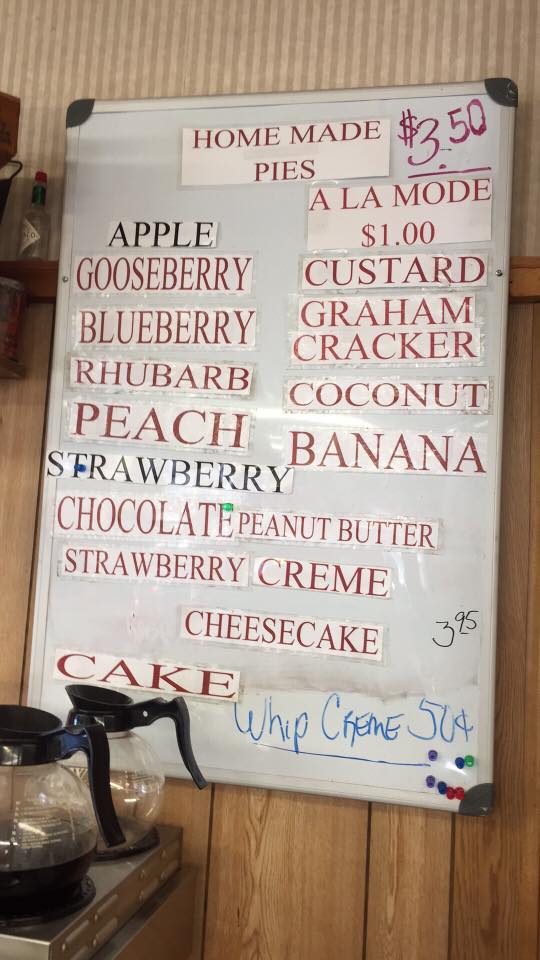 HOME MADE
PIES
$3.50
A LA MODE
$1.00
APPLE
GOOSEBERRY
BLUEBERRY
RHUBARB
PEACH
STRAWBERRY
CUSTARD
GRAHAM
CRACKER
COCONUT
BANANA
CHOCOLATE PEANUT BUTTER
STRAWBERRY CREME
CHEESECAKE 3.95
CAKE
Whip Creme 50¢